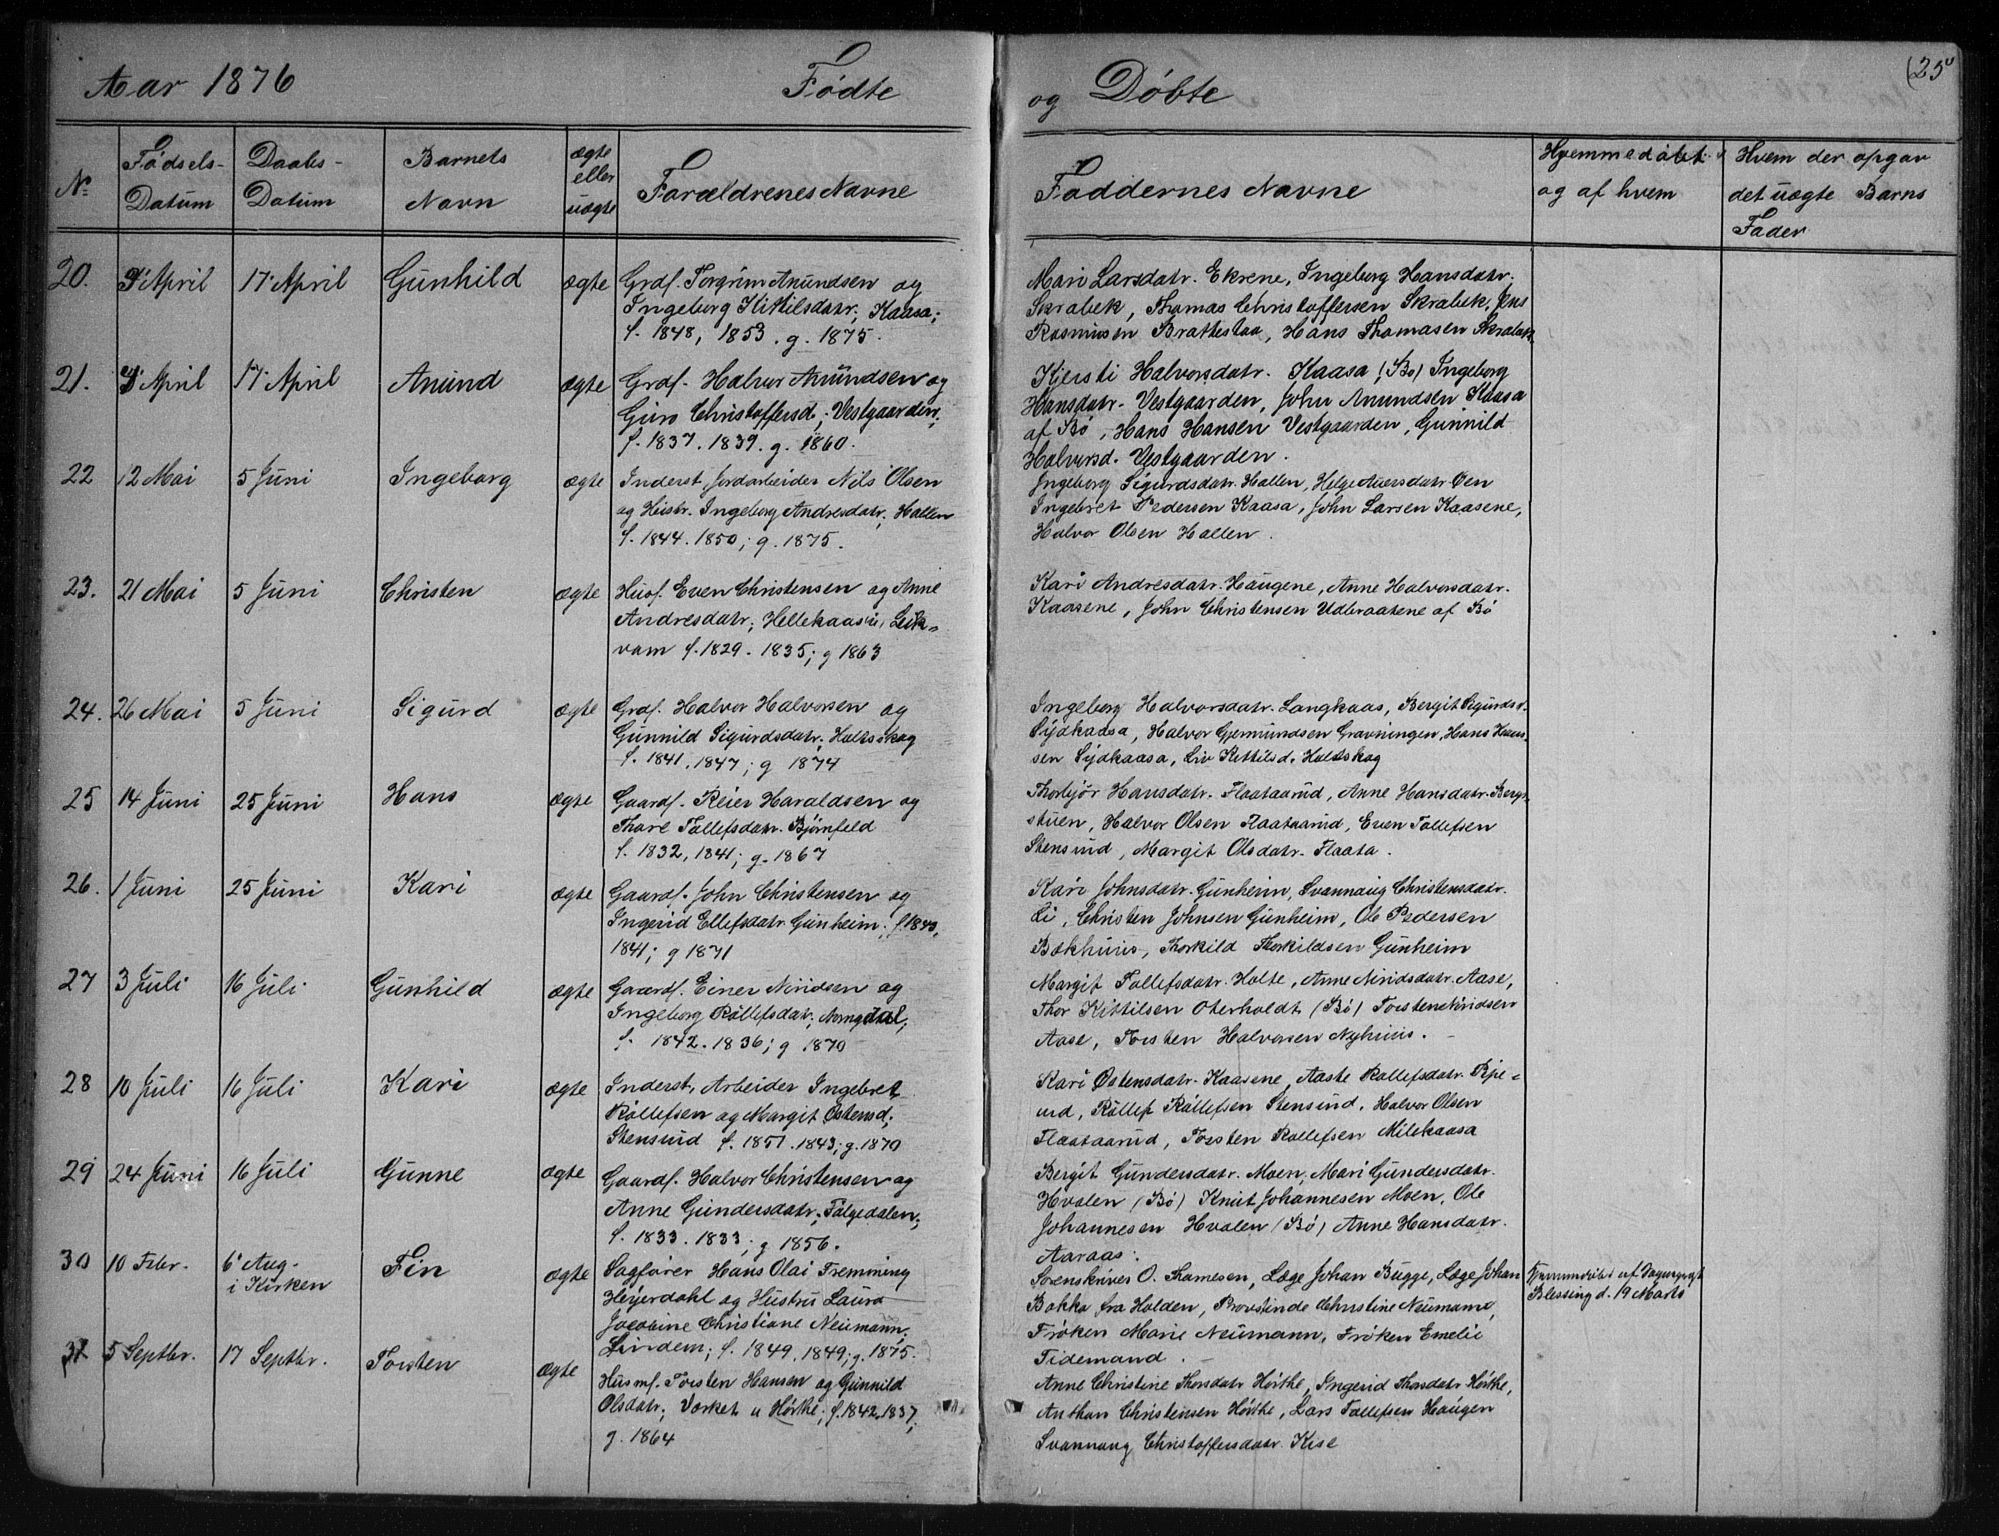 Aar 1876 Fødte og Døbte (25
No Fødsels-Datum Daabs-Datum Barnets Navn ægte eller uægte Forældrenes Navne Faddernes Navne Hjemmedøbt og af hvem Hvem der opgav det uægte Barns Fader
20. April 17 April Gunhild ægte Grdf. Torgrim Anundsen og
Ingeborg Kittilsdatr., Kaasa;
f. 1848, 1853. g. 1875.
Mari Larsdatr. Ekrene, Ingeborg Hansdatr.
Skrabek, Thomas Christoffersen Skrabek, Jens
Rasmusen Brattestaa, Hans Thomasen Skrabek
21. April 17 April Anund ægte Grdf. Halvor Anundsen og
Guro Christoffersd., Vestgaarden;
f. 1837. 1839. g. 1860.
Kjersti Halvorsdatr. Kaasa (Bø) Ingeborg
Hansdatr. Vestgaarden, John Anundsen Kaasa
af Bø, Hans Hansen Vestgaarden, Gunnild
Halvorsd. Vestgaarden.
22 12 Mai 5 Juni Ingeborg ægte Inderst, Jordarbeider Nils Olsen
og Hustr. Ingeborg Andresdatr., Hallen
f. 1844. 1850; g. 1875.
Ingeborg Sigurdsdatr. Hallen, Helge
Ingebret Pedersen Kaasa, John Larsen Kaasene,
Halvor Olsen Hallen.
23. 21 Mai 5 Juni Christen ægte Husf. Even Christensen og Anne
Andresdatr., Hellekaasa u. Leik-
vam f. 1829. 1835; g 1863
Kari Andresdatr. Haugene, Anne Halvorsdatr.
Kaasene, John Christensen Udbraatene af Bø
24. 26 Mai 5 Juni Sigurd ægte Grdf. Halvor Halvorsen og
Gunnild Sigurdsdatr., Holtsskog
f. 1841. 1847; g 1874
Ingeborg Halvorsdatr. Langkaas, Bergit Sigurdsd.
Sydkaasa, Halvor Gjermundsen Gravningen, Hans Han-
sen Sydkaasa, Liv Kittilsd. Holtskog
25 14 Juni 25 Juni Hans ægte Gaardf. Reier Haraldsen og
Thore Tollefsdatr. Bjørnfeld
f. 1832, 1841; g. 1867
Thorbjør Hansdatr. Flaataarud, Anne Hansdatr. Berg-
stuen, Halvor Olsen Flaataarud, Even Tollefsen
Stensrud, Margit Olsdatr. Flaata.
26. 1 Juni 25 Juni Kari ægte Gaardf. John Christensen og
Ingerid Ellefsdatr. Gunheim; f. 1843,
1841; g 1871
Kari Johnsdatr. Gunheim, Svannaug Christensdatr.
Li, Christen Johnsen Gunheim, Ole Pedersen
Bækhuus, Thorkild Thorkildsen Gunheim
27 3 Juli 16 Juli Gunhild ægte Gaardf. Einer Niridsen og
Ingeborg Rollefsdatr.,
f. 1842. 1836; g 1870
Margit Tollefsdatr. Holte, Anne Niridsdatr. Aase,
Thor Kittilsen Oterholdt (Bø) Torsten Niridsen
Aase, Torsten Halvorsen Nyhuus.
28 10 Juli 16 Juli Kari ægte Inderst, Arbeider Ingebret
Rollefsen og Margit Østensd.
Stensrud f. 1851. 1843; g. 1870
Kari Østensdatr. Kaasene, Aaste Rollefsdatr.
Rollef Rollefsen Stensrud, Halvor Olsen
Flaataarud, Torsten Rollefsen Milekaasa
29 24 Juni 16 Juli Gunne ægte Gaardf. Halvor Christensen og
Anne Gundersdatr., Følgedalen;
f. 1833. 1833; g 1856.
Bergit Gundersdatr. Moen, Mari Gundersdatr.
Hvalen (Bø) Knut Johannesen Moen, Ole
Johannesen Hvalen (Bø) Anne Hansdatr.
Aaraas.
30 10 Febr. 6 Aug. i Kirken Fin ægte Sagfører Hans Olai Fremming
Heyerdahl og Hustru Laura
Jacobine Christiane Neumann,
Lindem; f. 1849. 1849; g. 1875.
Sorenskriver O. Thomesen, Læge Johan Bugge, Læge Johan
Bakka fra Holden, Provstinde Christine Neumann,
Frøken Marie Neumann, Frøken Emelie
Tidemand.
Hjemmedøbt af
Blessing d. 19 Marts
31 5 Septbr. 17 Septbr. Torsten ægte Husmf. Torsten Hansen og Gunnild
Olsdatr., Værket u Hørthe; f. 1842. 1837;
g. 1864
Anne Christine Thorsdatr Hørthe, Ingerid Thorsdatr Hørthe,
Anthon Christensen Hørthe, Lars Tollefsen Haugen
Svannaug Christoffersdatr. Kise